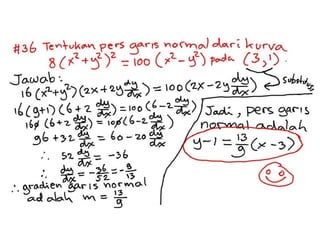 #36 Tentukan pers garis normal dari kurva
8(x²+y²)² = 100(x²-y²) pada (3,1).
Jawab:
16(x²+y²)(2x+2y dy/dx) = 100(2x-2y dy/dx)
16(9+1)(6+2 dy/dx) = 100(6-2 dy/dx)
160(6+2 dy/dx) = 100(6-2 dy/dx)
96+32 dy/dx = 60-20 dy/dx
∴ 52 dy/dx = -36
∴ dy/dx = -36/52 = -9/13
∴ gradien garis normal
adalah m = 13/9
Jadi, pers garis
normal adalah
y-1 = 13/9 (x-3)